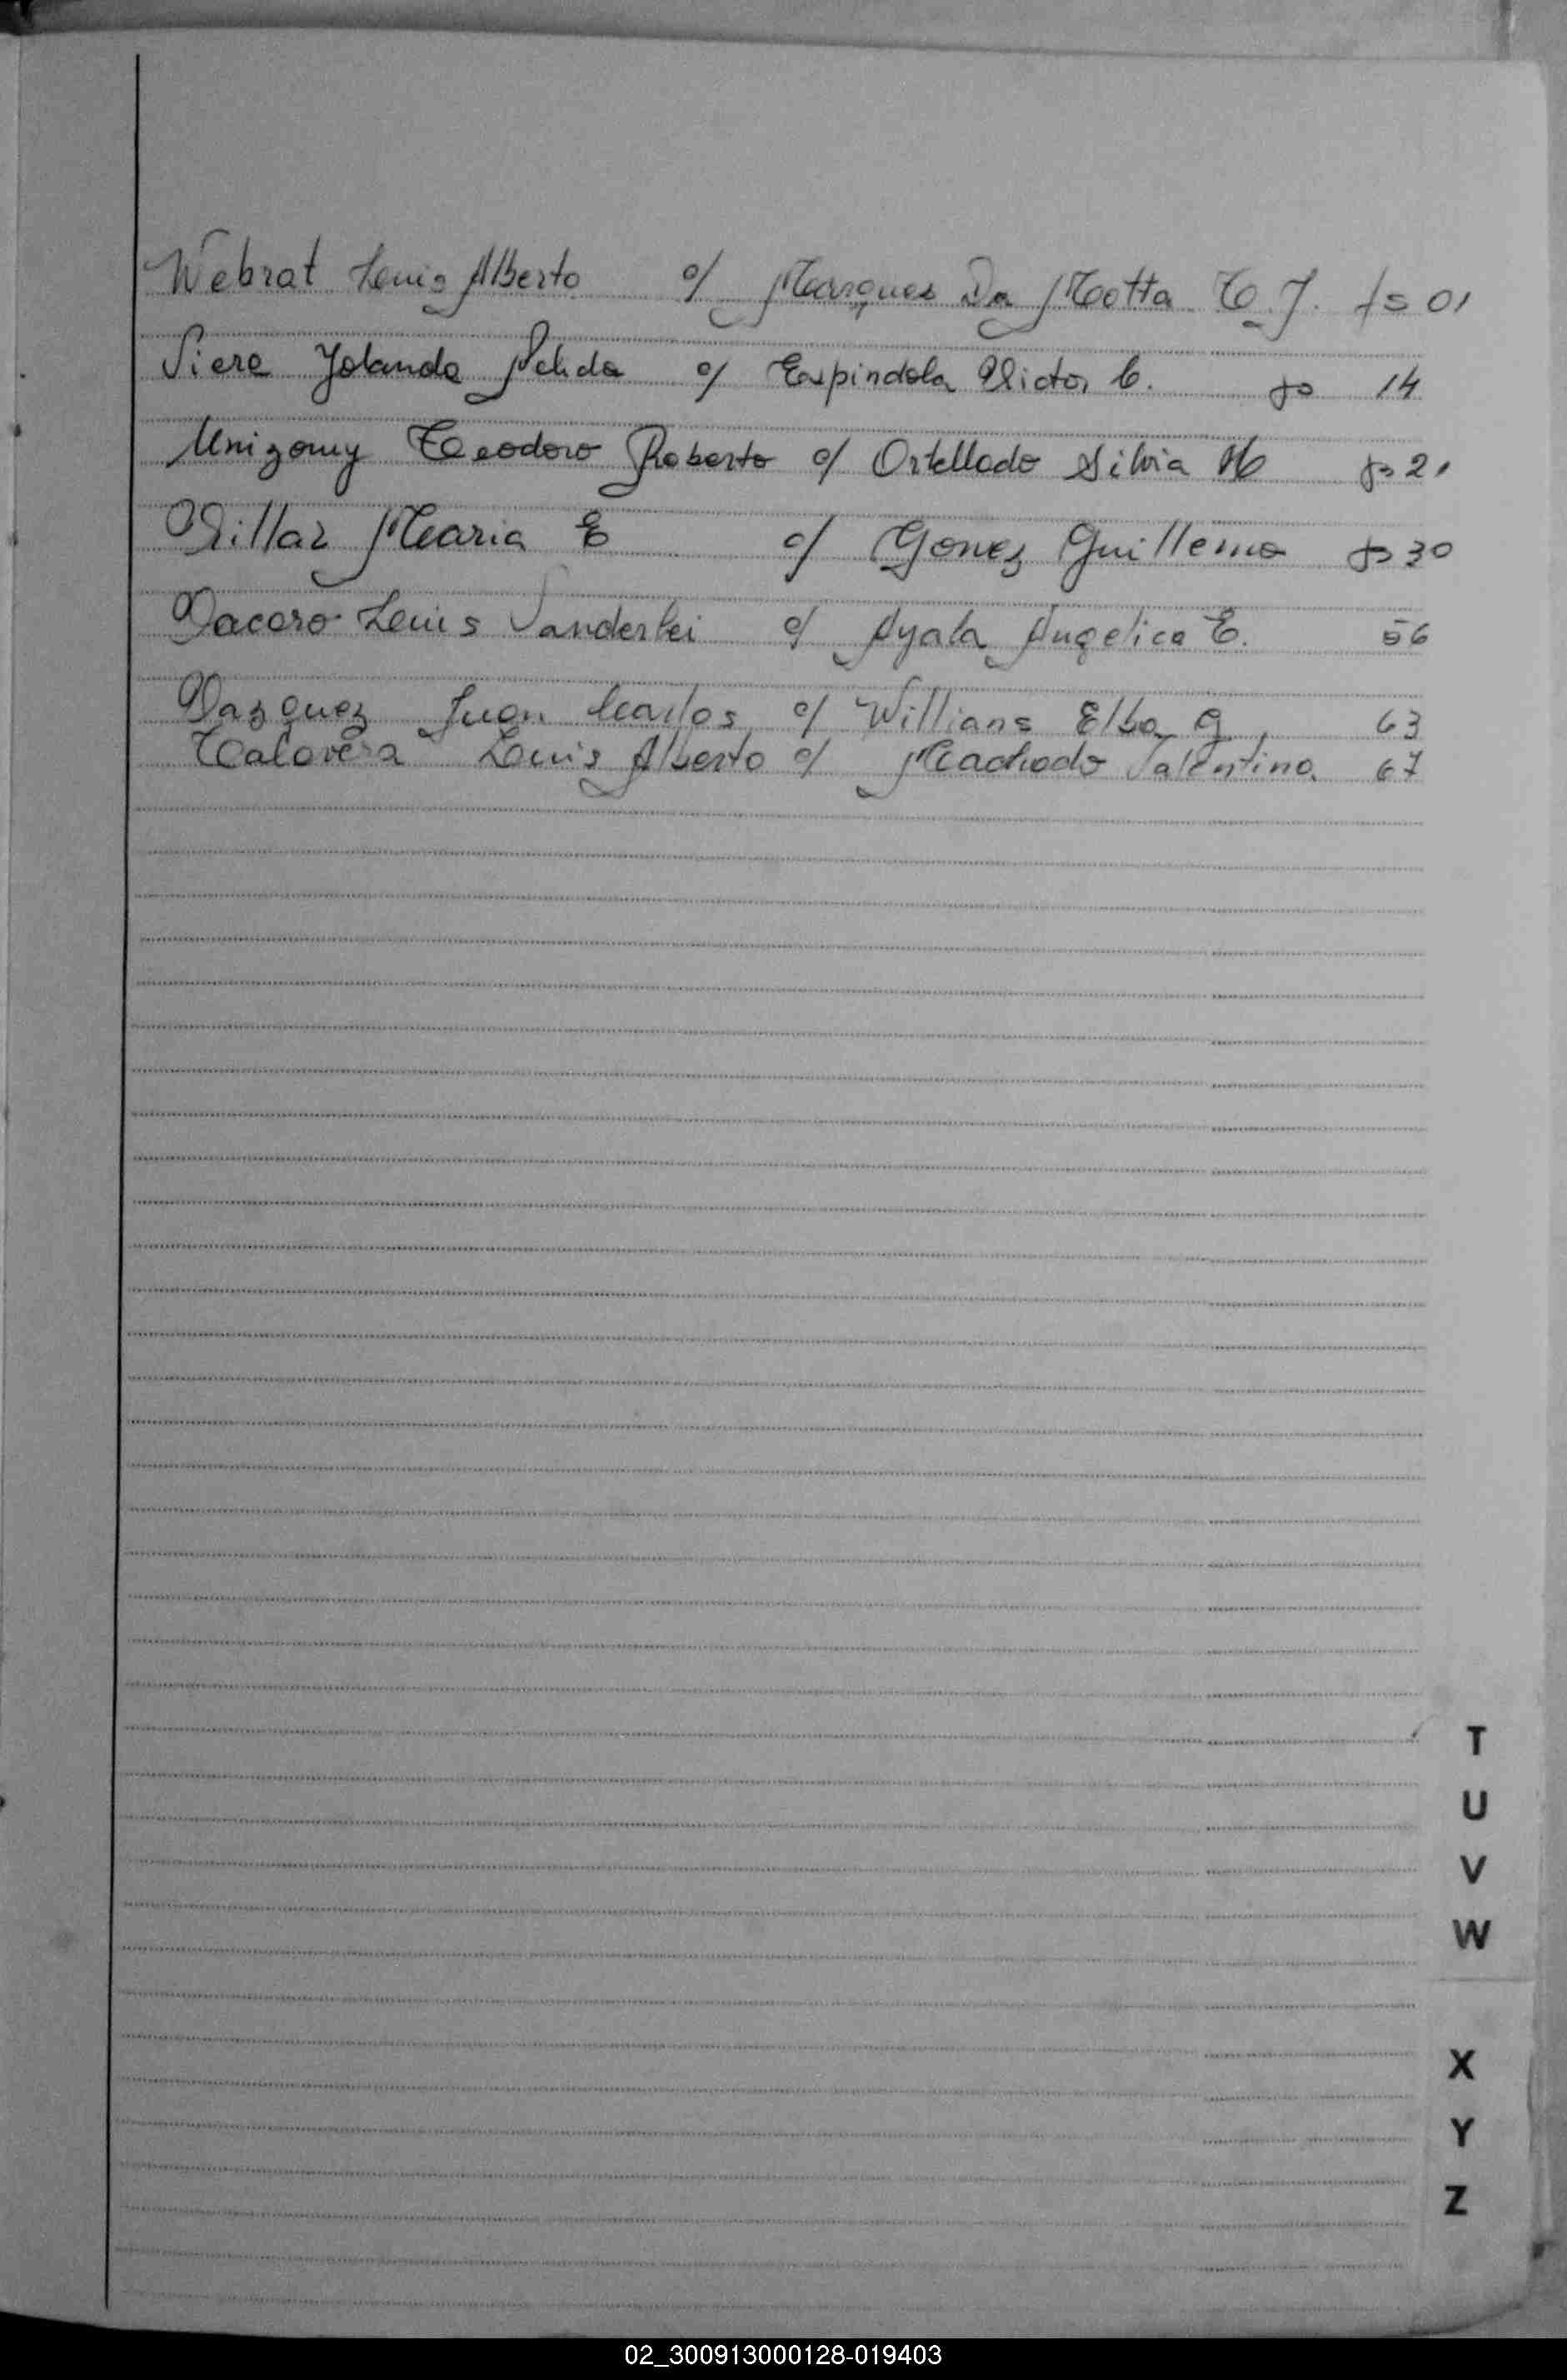 Webrat Luis Alberto c/ Marques Da Motta T. J. fs 01
Viera Yolanda Nelida c/ Espindola Victor C. fs 14
Unizony Teodoro Roberto c/ Ortellado Silvia M fs 21
Villar Maria E c/ Gomez Guillermo fs 30
Vacaro Luis Vanderlei c/ Ayala Angelica E. 56
Vazquez Juan Carlos c/ Willians Elba G. 63
Talavera Luis Alberto c/ Machado Valentina 67
T
U
V
W
X
Y
Z
02_300913000128-019403